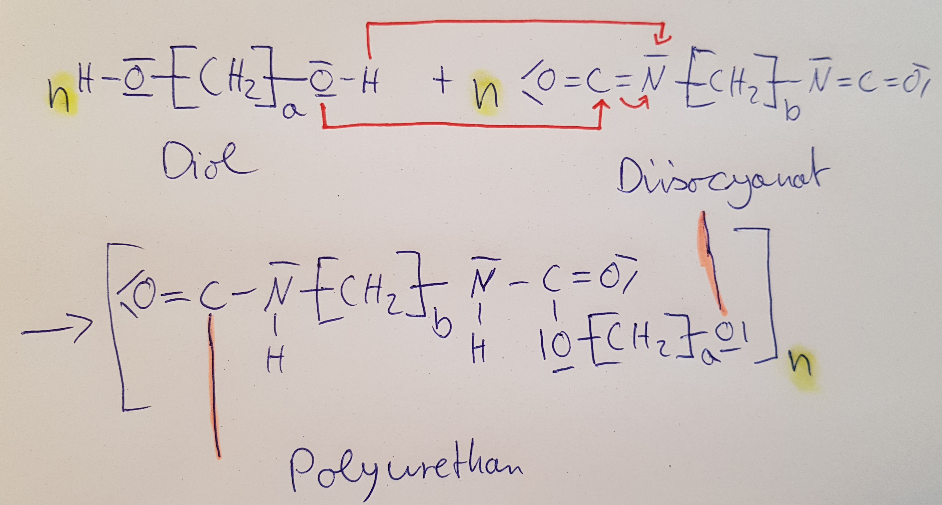 n H-O-[CH2]a-O-H + n O=C=N-[CH2]b-N=C=O
Diol Diisocyanat
→ [O=C-N-[CH2]b-N-C=O
H H O-[CH2]a-O]n
Polyurethan